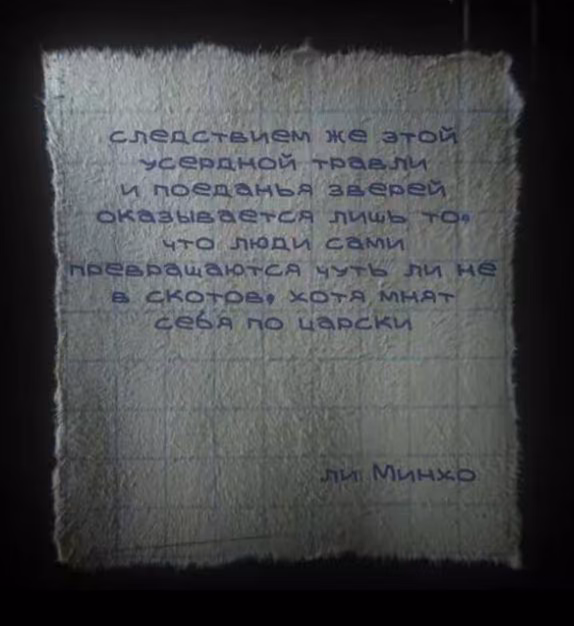 следствием же этой
усердной травли
и поеданья зверей
оказывается лишь то,
что люди сами
превращаются чуть ли не
в скотов, хотя мнят
себя по царски
ли Минхо